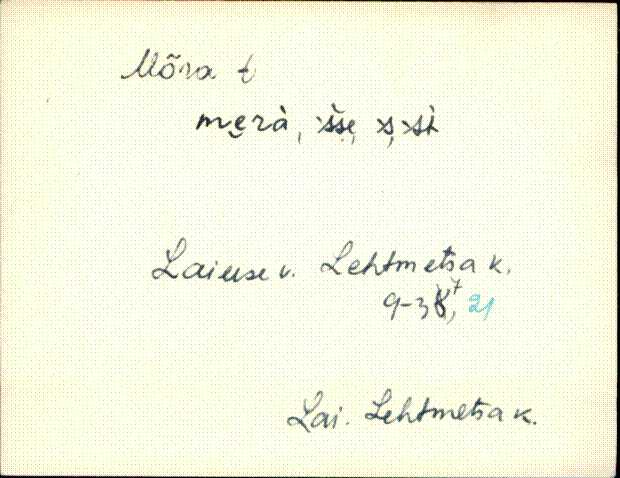 Mõra t
me̮rà, ˋšše, ˋs, ˋsì
Laiuse v. Lehtmetsa k.
9-38⁷, 21
Lai. Lehtmetsa k.